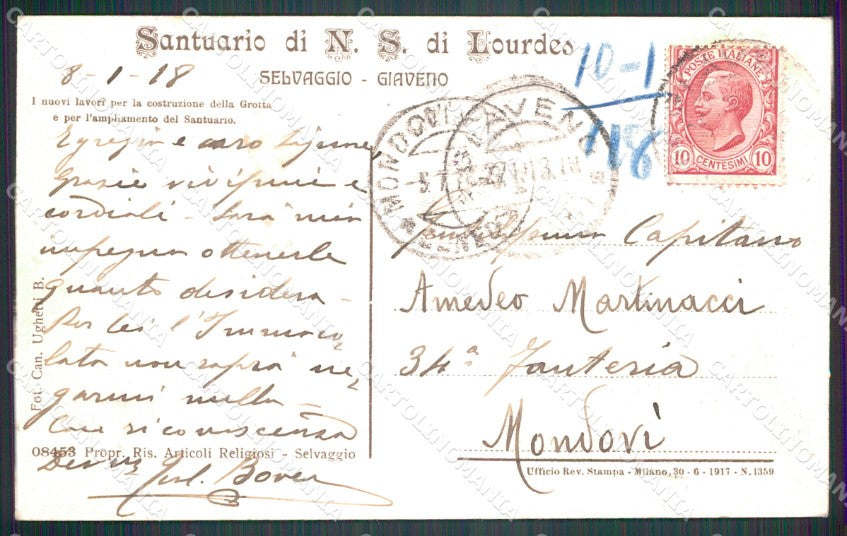 Santuario di N. S. di Lourdes
SELVAGGIO - GIAVENO
8-1-18
I nuovi lavori per la costruzione della Grotta
e per l'ampliamento del Santuario.
Egregio e caro Signore,
Grazie vivissime e
cordiali - Sarà mia
impegno ottenerle
quanto desidera -
Per lei l'Immaco
lata non saprà ne
garmi nulla -
Con riconoscenza
Bover
Fot. Can. Ughetti B.
08453 Propr. Ris. Articoli Religiosi - Selvaggio
10-1
118
POSTE ITALIANE
10 CENTESIMI 10
MONDOVI
Capitano
Amedeo Martinacci
34ª Fanteria
Mondovì
Ufficio Rev. Stampa - Milano, 30 - 6 - 1917 - N. 1359
CARTOLINOMANIA